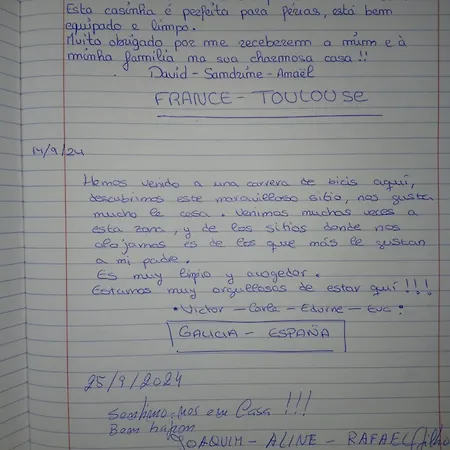 Esta casinha é perfeita para férias, está bem
equipado e limpo.
Muito obrigado por me receberem a mim e à
minha família na sua charmosa casa !!
David - Sandrine - Amaël
FRANCE - TOULOUSE
14/9/24
Hemos venido a una carrera de bicis aquí,
descubrimos este maravilloso sitio, nos gusta
mucho la casa. Venimos muchas veces a
esta zona, y de los sitios donde nos
alojamos es de los que más le gustan
a mi padre.
Es muy limpio y acogedor.
Estamos muy orgullosos de estar quí !!!
• Victor - Carla - Edurne - Eva :
GALICIA - ESPAÑA
25/9/2024
Sentimo-nos em Casa !!!
Bem hajam
JOAQUIM - ALINE - RAFAEL Filho